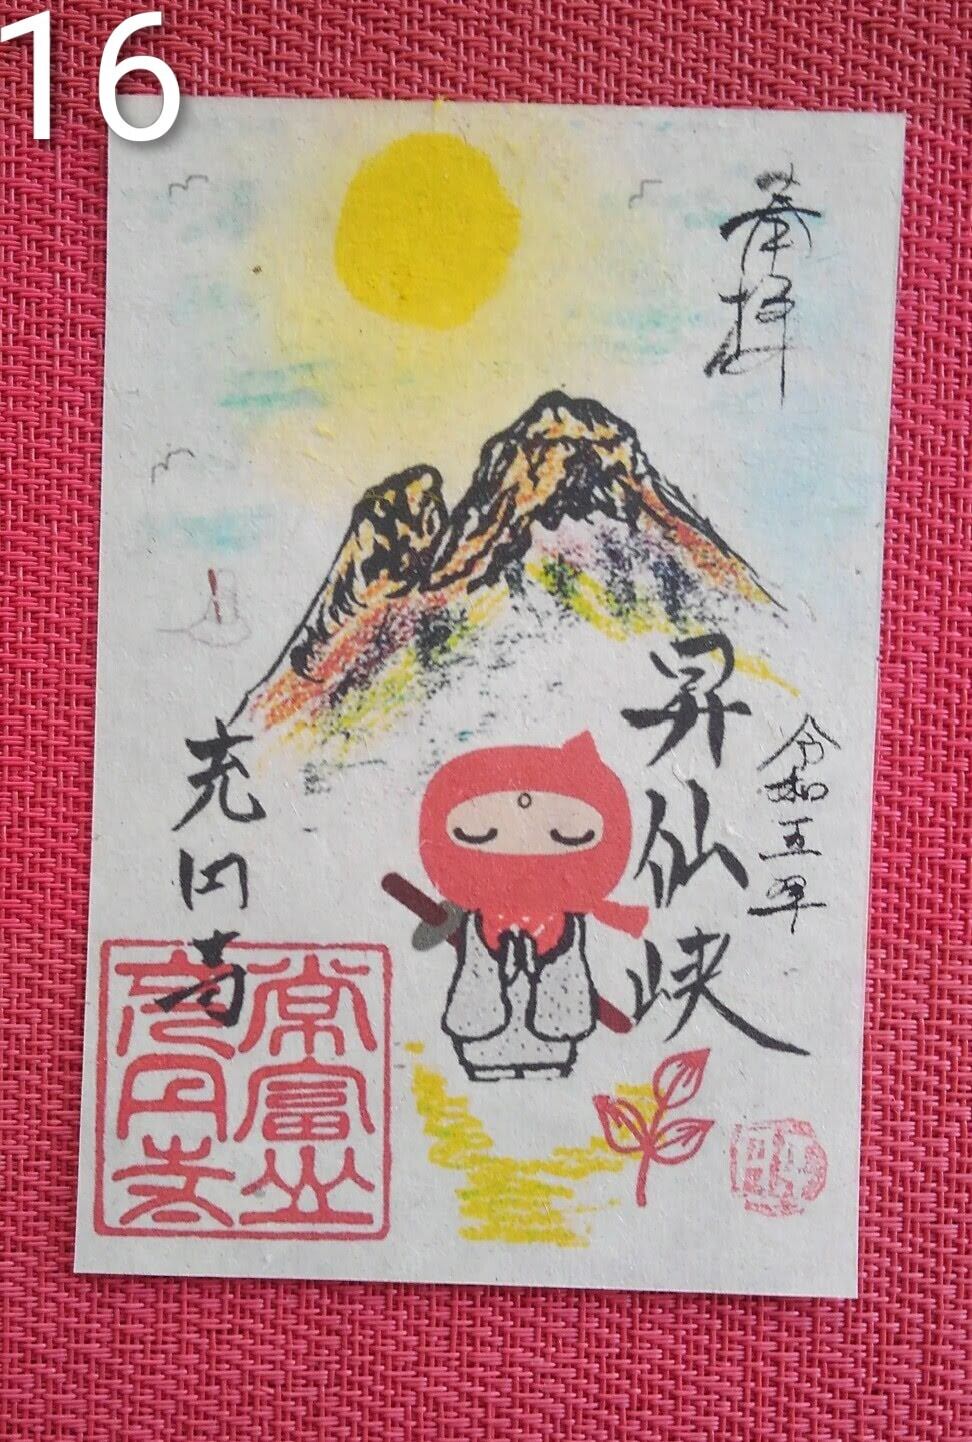 16
奉拝
令和五年
昇仙峡
充円寺
常富山
充円寺